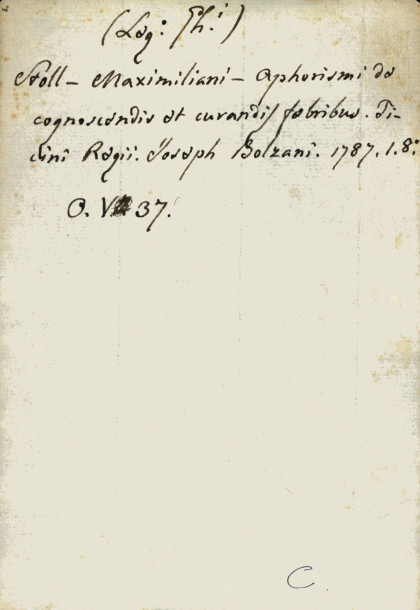 (Leg: Fh.i)
Stoll – Maximiliani – Aphorismi de
cognoscendis et curandis febribus. Ti-
cini Regii. Joseph Bolzani. 1787. 1. 8:
O. V 37.
C